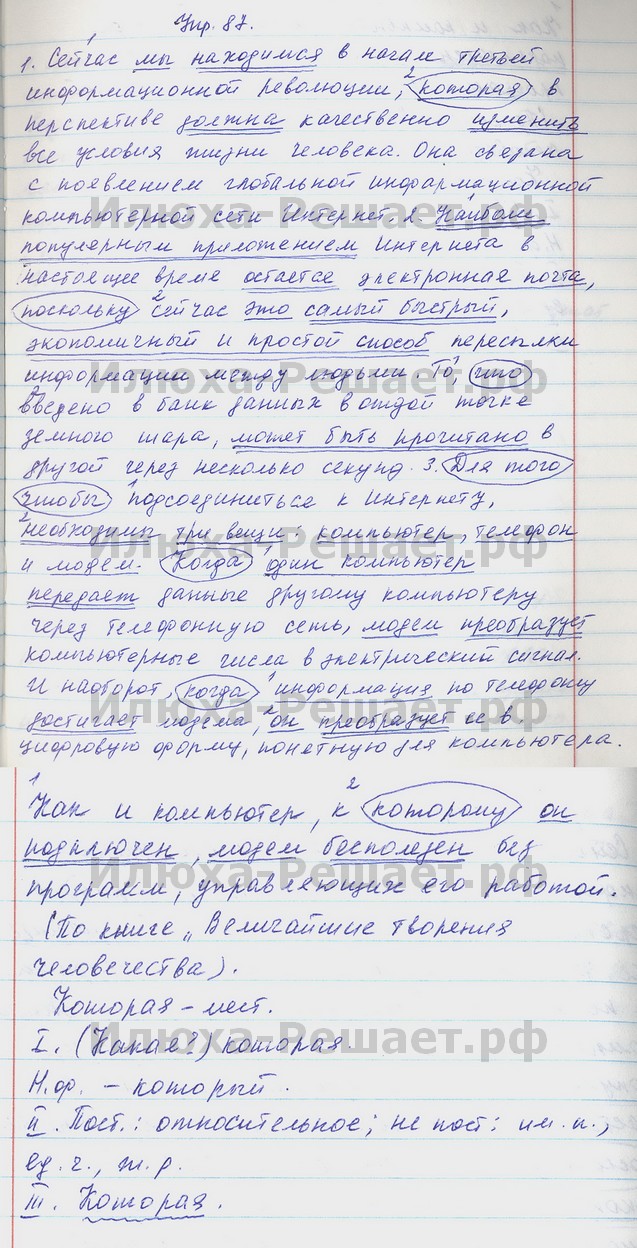 Упр. 87.
1. Сейчас мы находимся в начале третьей
информационной революции, которая в
перспективе должна качественно изменить
все условия жизни человека. Она связана
с появлением глобальной информационной
компьютерной сети Интернет. 2. Наиболее
популярным приложением Интернета в
настоящее время остается электронная почта,
поскольку сейчас это самый быстрый,
экономичный и простой способ пересылки
информации между людьми. То, что
введено в банк данных в одной точке
земного шара, может быть прочитано в
другой через несколько секунд. 3. Для того
чтобы подсоединиться к Интернету,
необходимы три вещи: компьютер, телефон
и модем. Когда один компьютер
передает данные другому компьютеру
через телефонную сеть, модем преобразует
компьютерные числа в электрический сигнал.
И наоборот, когда информация по телефону
достигает модема, он преобразует ее в
цифровую форму, понятную для компьютера.
Как и компьютер, к которому он
подключен, модем бесполезен без
программ, управляющих его работой.
(По книге „Величайшие творения
человечества).
Которая – мест.
I. (Какая?) которая.
Н.ф. – который.
II. Пост.: относительное; не пост: им.п.,
ед.ч., ж.р.
III. Которая.
Илюха-Решает.рф
Илюха-Решает.рф
Илюха-Решает.рф
Илюха-Решает.рф
Илюха-Решает.рф
Илюха-Решает.рф